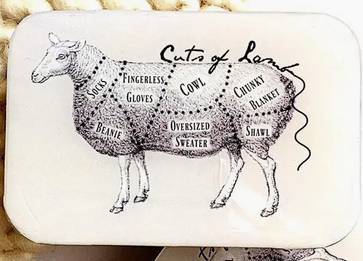 Cuts of Lamb
Socks
Fingerless
Gloves
Cowl
Chunky
Blanket
Beanie
Oversized
Sweater
Shawl